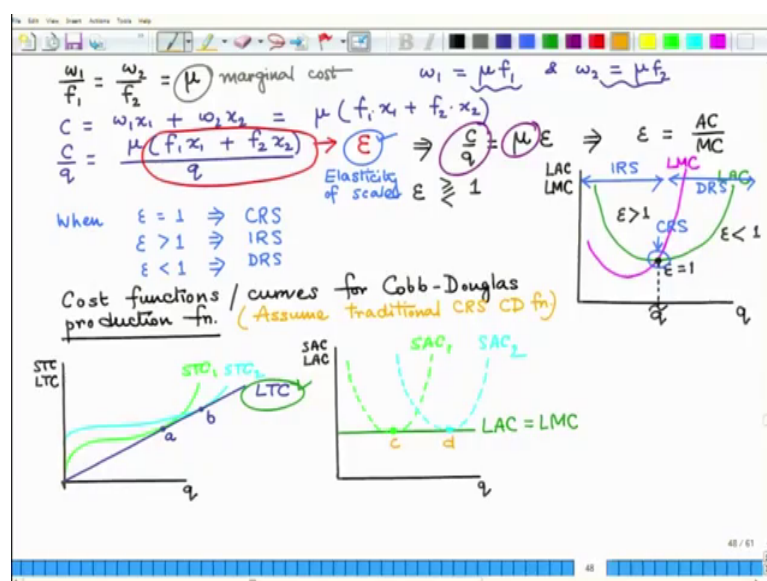 File Edit View Insert Actions Tools Help
w₁/f₁ = w₂/f₂ = μ marginal cost
w₁ = μf₁ & w₂ = μf₂
C = w₁x₁ + w₂x₂ = μ(f₁·x₁ + f₂·x₂)
C/q = μ(f₁x₁ + f₂x₂)/q → ε ⇒ C/q = μ ε ⇒ ε = AC/MC
Elasticity of scales
ε ⪌ 1
When ε = 1 ⇒ CRS
ε > 1 ⇒ IRS
ε < 1 ⇒ DRS
LAC
LMC
IRS
LMC
LAC
DRS
ε>1
CRS
ε<1
ε=1
q̃
q
Cost functions / curves for Cobb-Douglas
production fn. (Assume traditional CRS CD fn)
STC
LTC
STC₁ STC₂
LTC
a
b
q
SAC
LAC
SAC₁
SAC₂
LAC = LMC
c
d
q
48 / 61
48